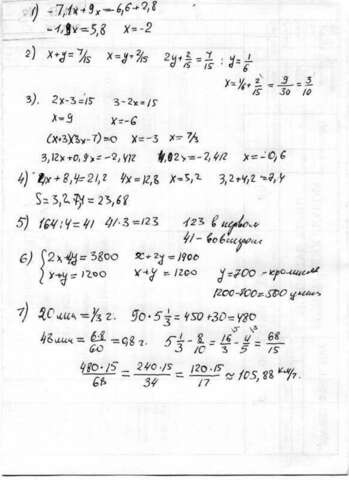 1) -7,1x+9x=-6,6+2,8
-1,9x=5,8 x=-2
2) x+y=7/15 x=y+2/15 2y+2/15=7/15; y=1/6
x=1/6+2/15=9/30=3/10
3). 2x-3=15 3-2x=15
x=9 x=-6
(x+3)(3x-7)=0 x=-3 x=7/3
3,12x+0,9x=-2,412 4,02x=-2,412 x=-0,6
4) 4x+8,4=21,2 4x=12,8 x=3,2 3,2+4,2=7,4
S=3,2·7,4=23,68
5) 164:4=41 41·3=123 123 в первом
41- во втором
6) {2x+4y=3800 x+2y=1900
x+y=1200 x+y=1200 y=700 - кроликов
1200-700=500
7) 20мин=1/3 г. 90·5 1/3=450+30=480
48мин=6·8/60=0,8 г. 5 1/3-8/10=16/3-4/5=68/15
480·15/68=240·15/34=120·15/17≈105,88 км/г.